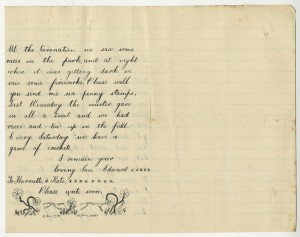 At the Coronation we saw some
races in the park and at night
when it was getting dark we
saw some fireworks. Please will
you send me six penny stamps.
Last Wenesday the master gave
us all a treat and we had
races and tea up in the field.
Every Saturday we have a
game of cricket.
I remain your
loving Son Edward xxxxx
To Harriette & Kate, x x x x x x x
Please write soon